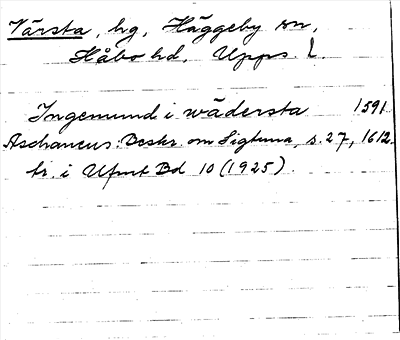 Värsta, hg, Häggeby sn,
Håbo hd, Upps. L.
Ingemund i wädersta 1591
Aschaneus: Beskr. om Sigtuna, s. 27, 1612.
tr. i Ufmt Bd 10 (1925).